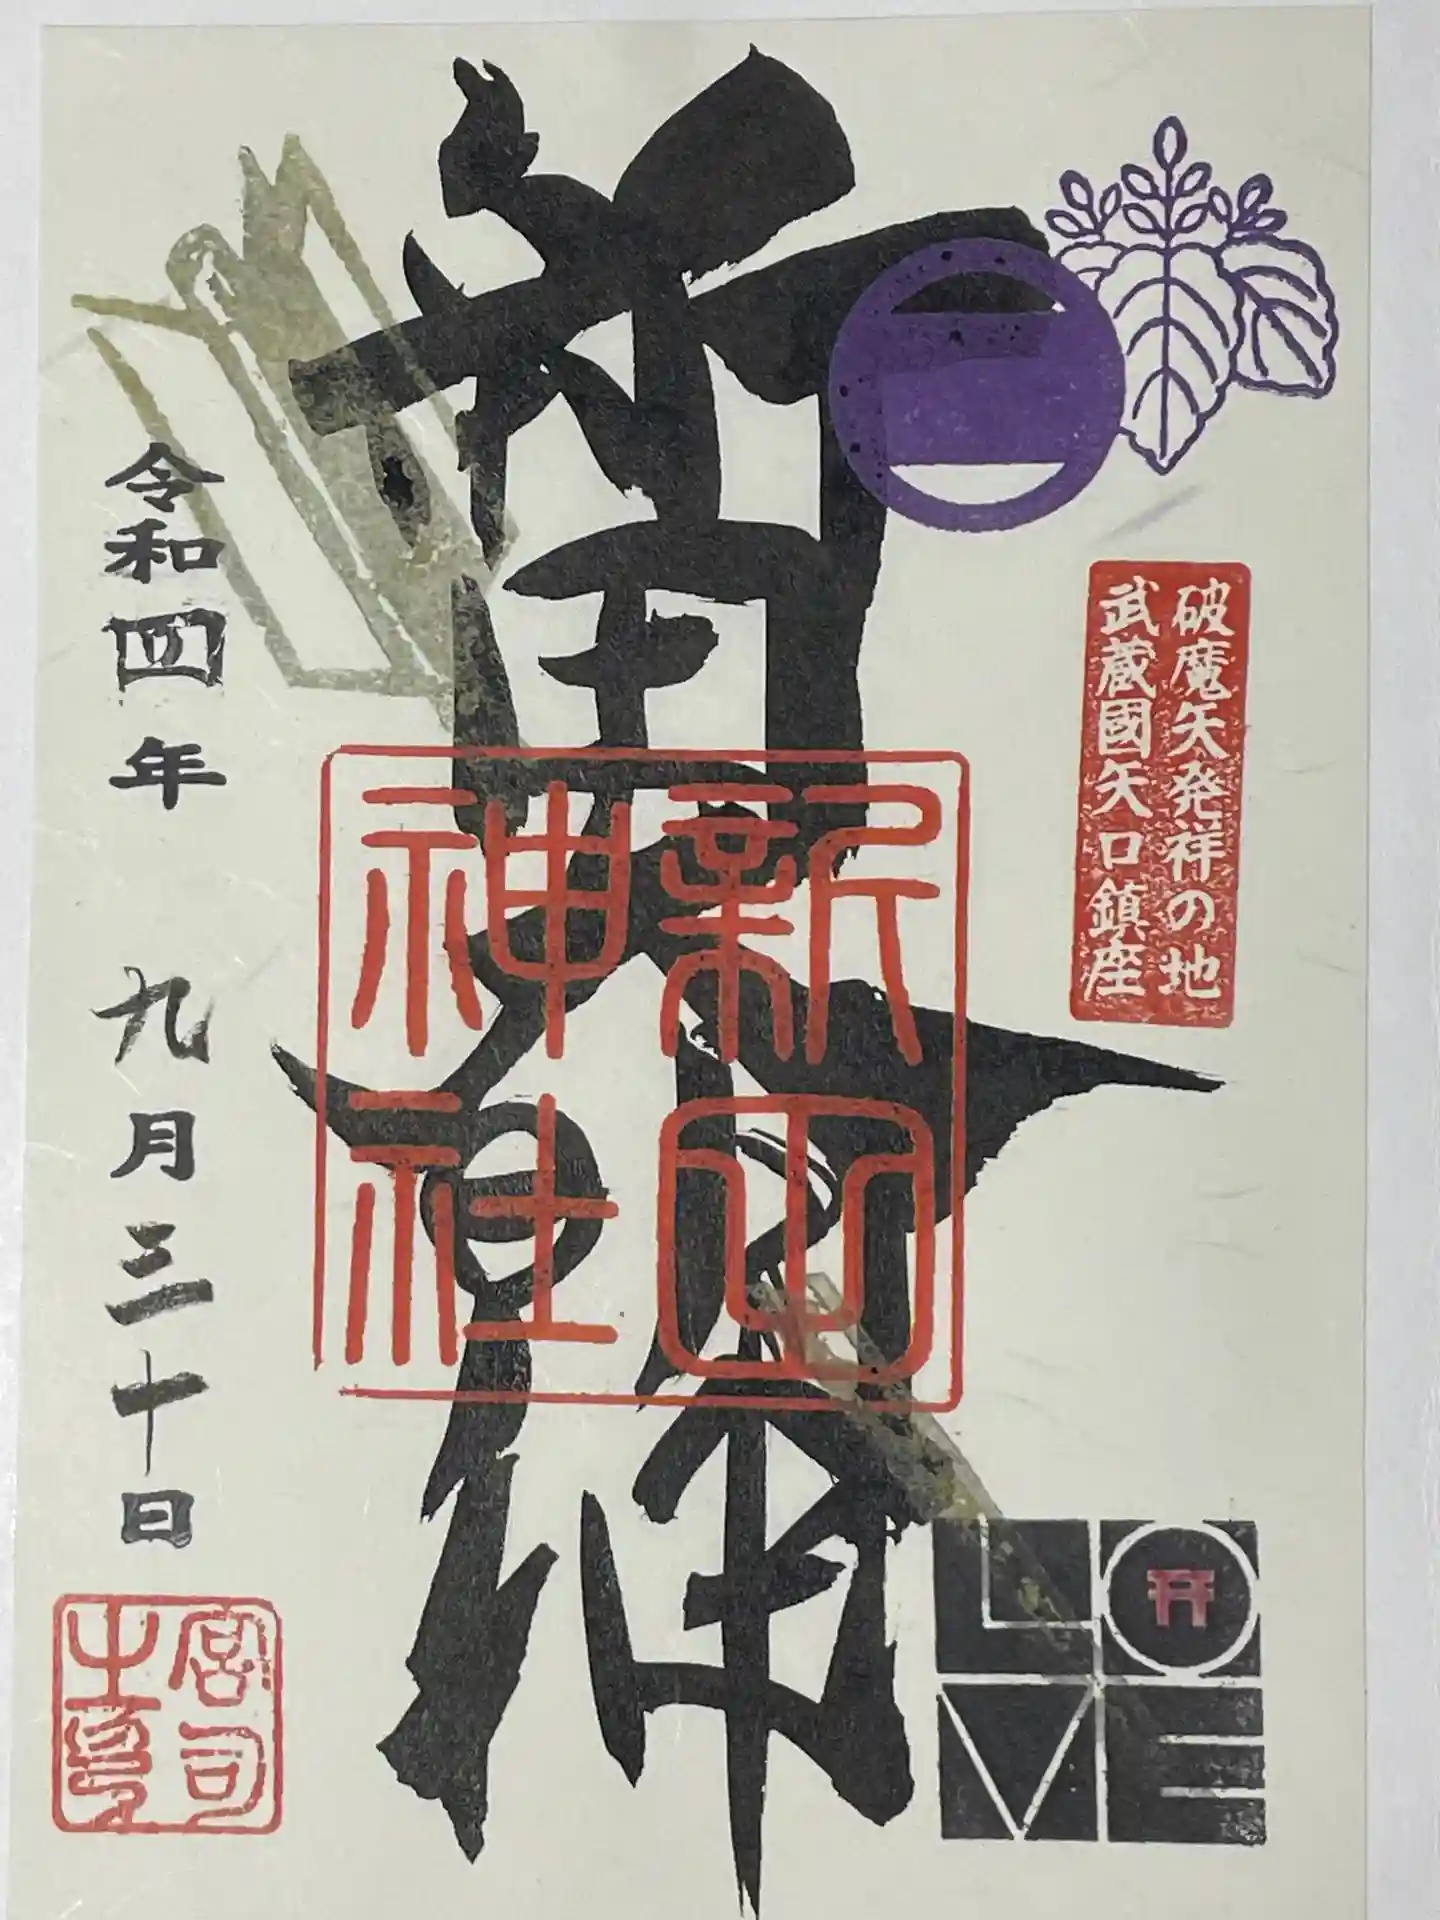 破魔矢発祥の地
武蔵國矢口鎮座
新田大神
新田
神社
令和四年 九月三十日
宮司
之印
LO
VE